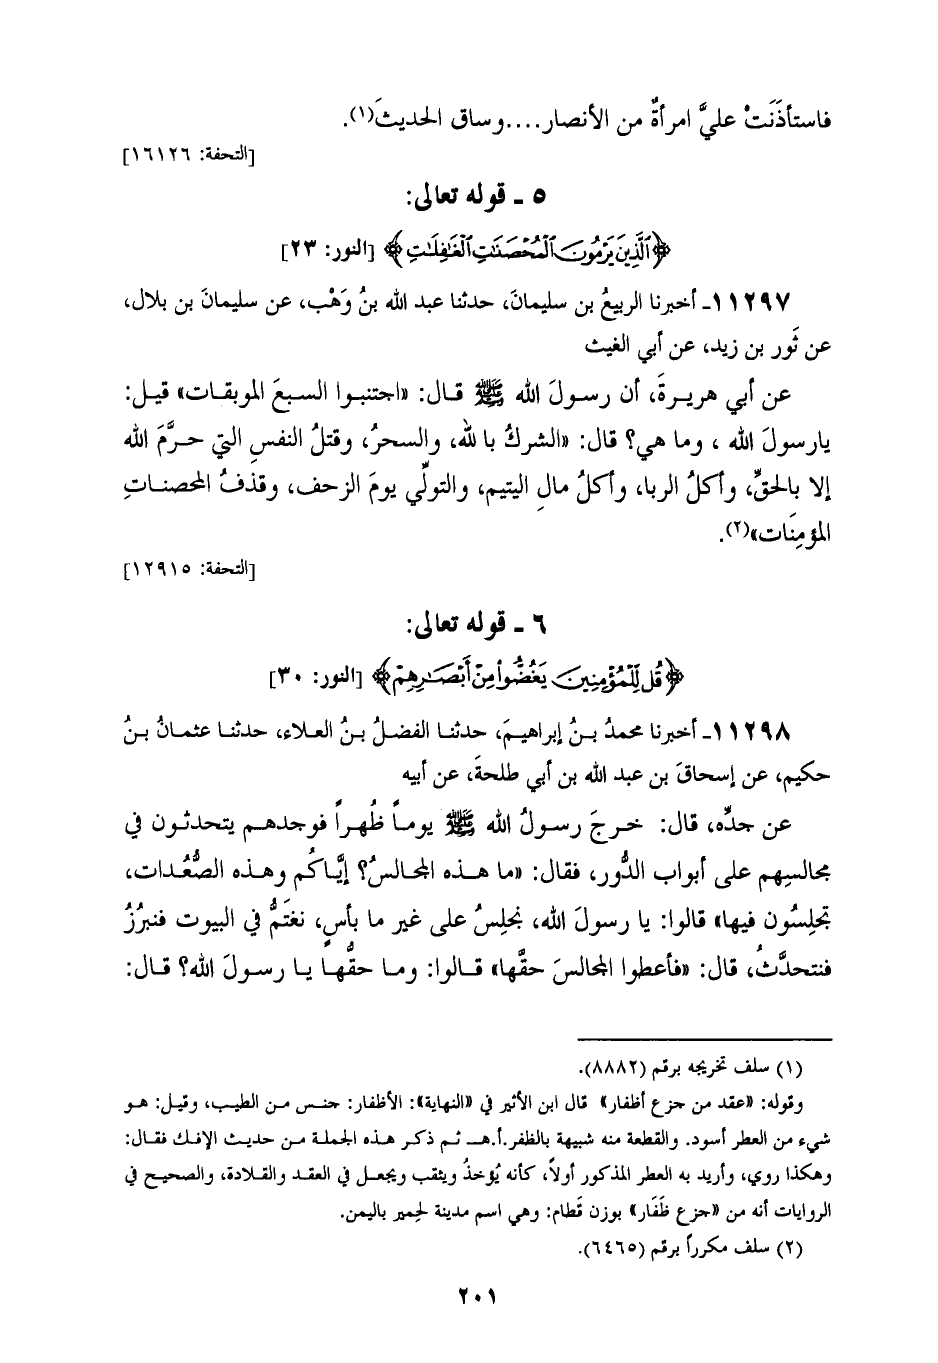 فاستأذَنَتْ عليَّ امرأةٌ من الأنصار....وساق الحديثَ(١).
[التحفة: ١٦١٢٦]
٥ ـ قوله تعالى:
﴿ٱلَّذِينَ يَرْمُونَ ٱلْمُحْصَنَٰتِ ٱلْغَٰفِلَٰتِ﴾ [النور: ٢٣]
١١٢٩٧ـ أخبرنا الربيعُ بن سليمانَ، حدثنا عبد الله بنُ وَهْب، عن سليمانَ بن بلال،
عن ثَور بن زيد، عن أبي الغيث
عن أبي هريرةَ، أن رسولَ الله ﷺ قال: «اجتنبوا السبعَ الموبقات» قيل:
يارسولَ الله ، وما هي؟ قال: «الشركُ بالله، والسحرُ، وقتلُ النفسِ التي حرَّمَ الله
إلا بالحقِّ، وأكلُ الربا، وأكلُ مالِ اليتيم، والتولِّي يومَ الزحف، وقذفُ المحصناتِ
المؤمِنَات»(٢).
[التحفة: ١٢٩١٥]
٦ ـ قوله تعالى:
﴿قُل لِّلْمُؤْمِنِينَ يَغُضُّواْ مِنْ أَبْصَٰرِهِمْ﴾ [النور: ٣٠]
١١٢٩٨ـ أخبرنا محمدُ بنُ إبراهيمَ، حدثنا الفضلُ بنُ العلاء، حدثنا عثمانُ بنُ
حكيم، عن إسحاقَ بن عبد الله بن أبي طلحةَ، عن أبيه
عن جدِّه، قال: خرجَ رسولُ الله ﷺ يوماً ظُهراً فوجدهم يتحدثون في
مجالسِهم على أبواب الدُّور، فقال: «ما هذه المجالسُ؟ إيَّاكُم وهذه الصُّعُدات،
تجلِسُون فيها» قالوا: يا رسولَ الله، نجلِسُ على غير ما بأسٍ، نغتَمُّ في البيوت فنبرُزُ
فنتحدَّثُ، قال: «فأعطوا المجالسَ حقَّها» قالوا: وما حقُّها يا رسولَ الله؟ قال:
(١) سلف تخريجه برقم (٨٨٨٢).
وقوله: «عقد من جزع أظفار» قال ابن الأثير في «النهاية»: الأظفار: جنس من الطيب، وقيل: هو
شيء من العطر أسود. والقطعة منه شبيهة بالظفر.أ.هـ ثم ذكر هذه الجملة من حديث الإفك فقال:
وهكذا روي، وأريد به العطر المذكور أولاً، كأنه يُؤخذُ ويثقب ويجعل في العقد والقلادة، والصحيح في
الروايات أنه من «جزع ظَفَار» بوزن قَطام: وهي اسم مدينة لحِمير باليمن.
(٢) سلف مكرراً برقم (٦٤٦٥).
٢٠١